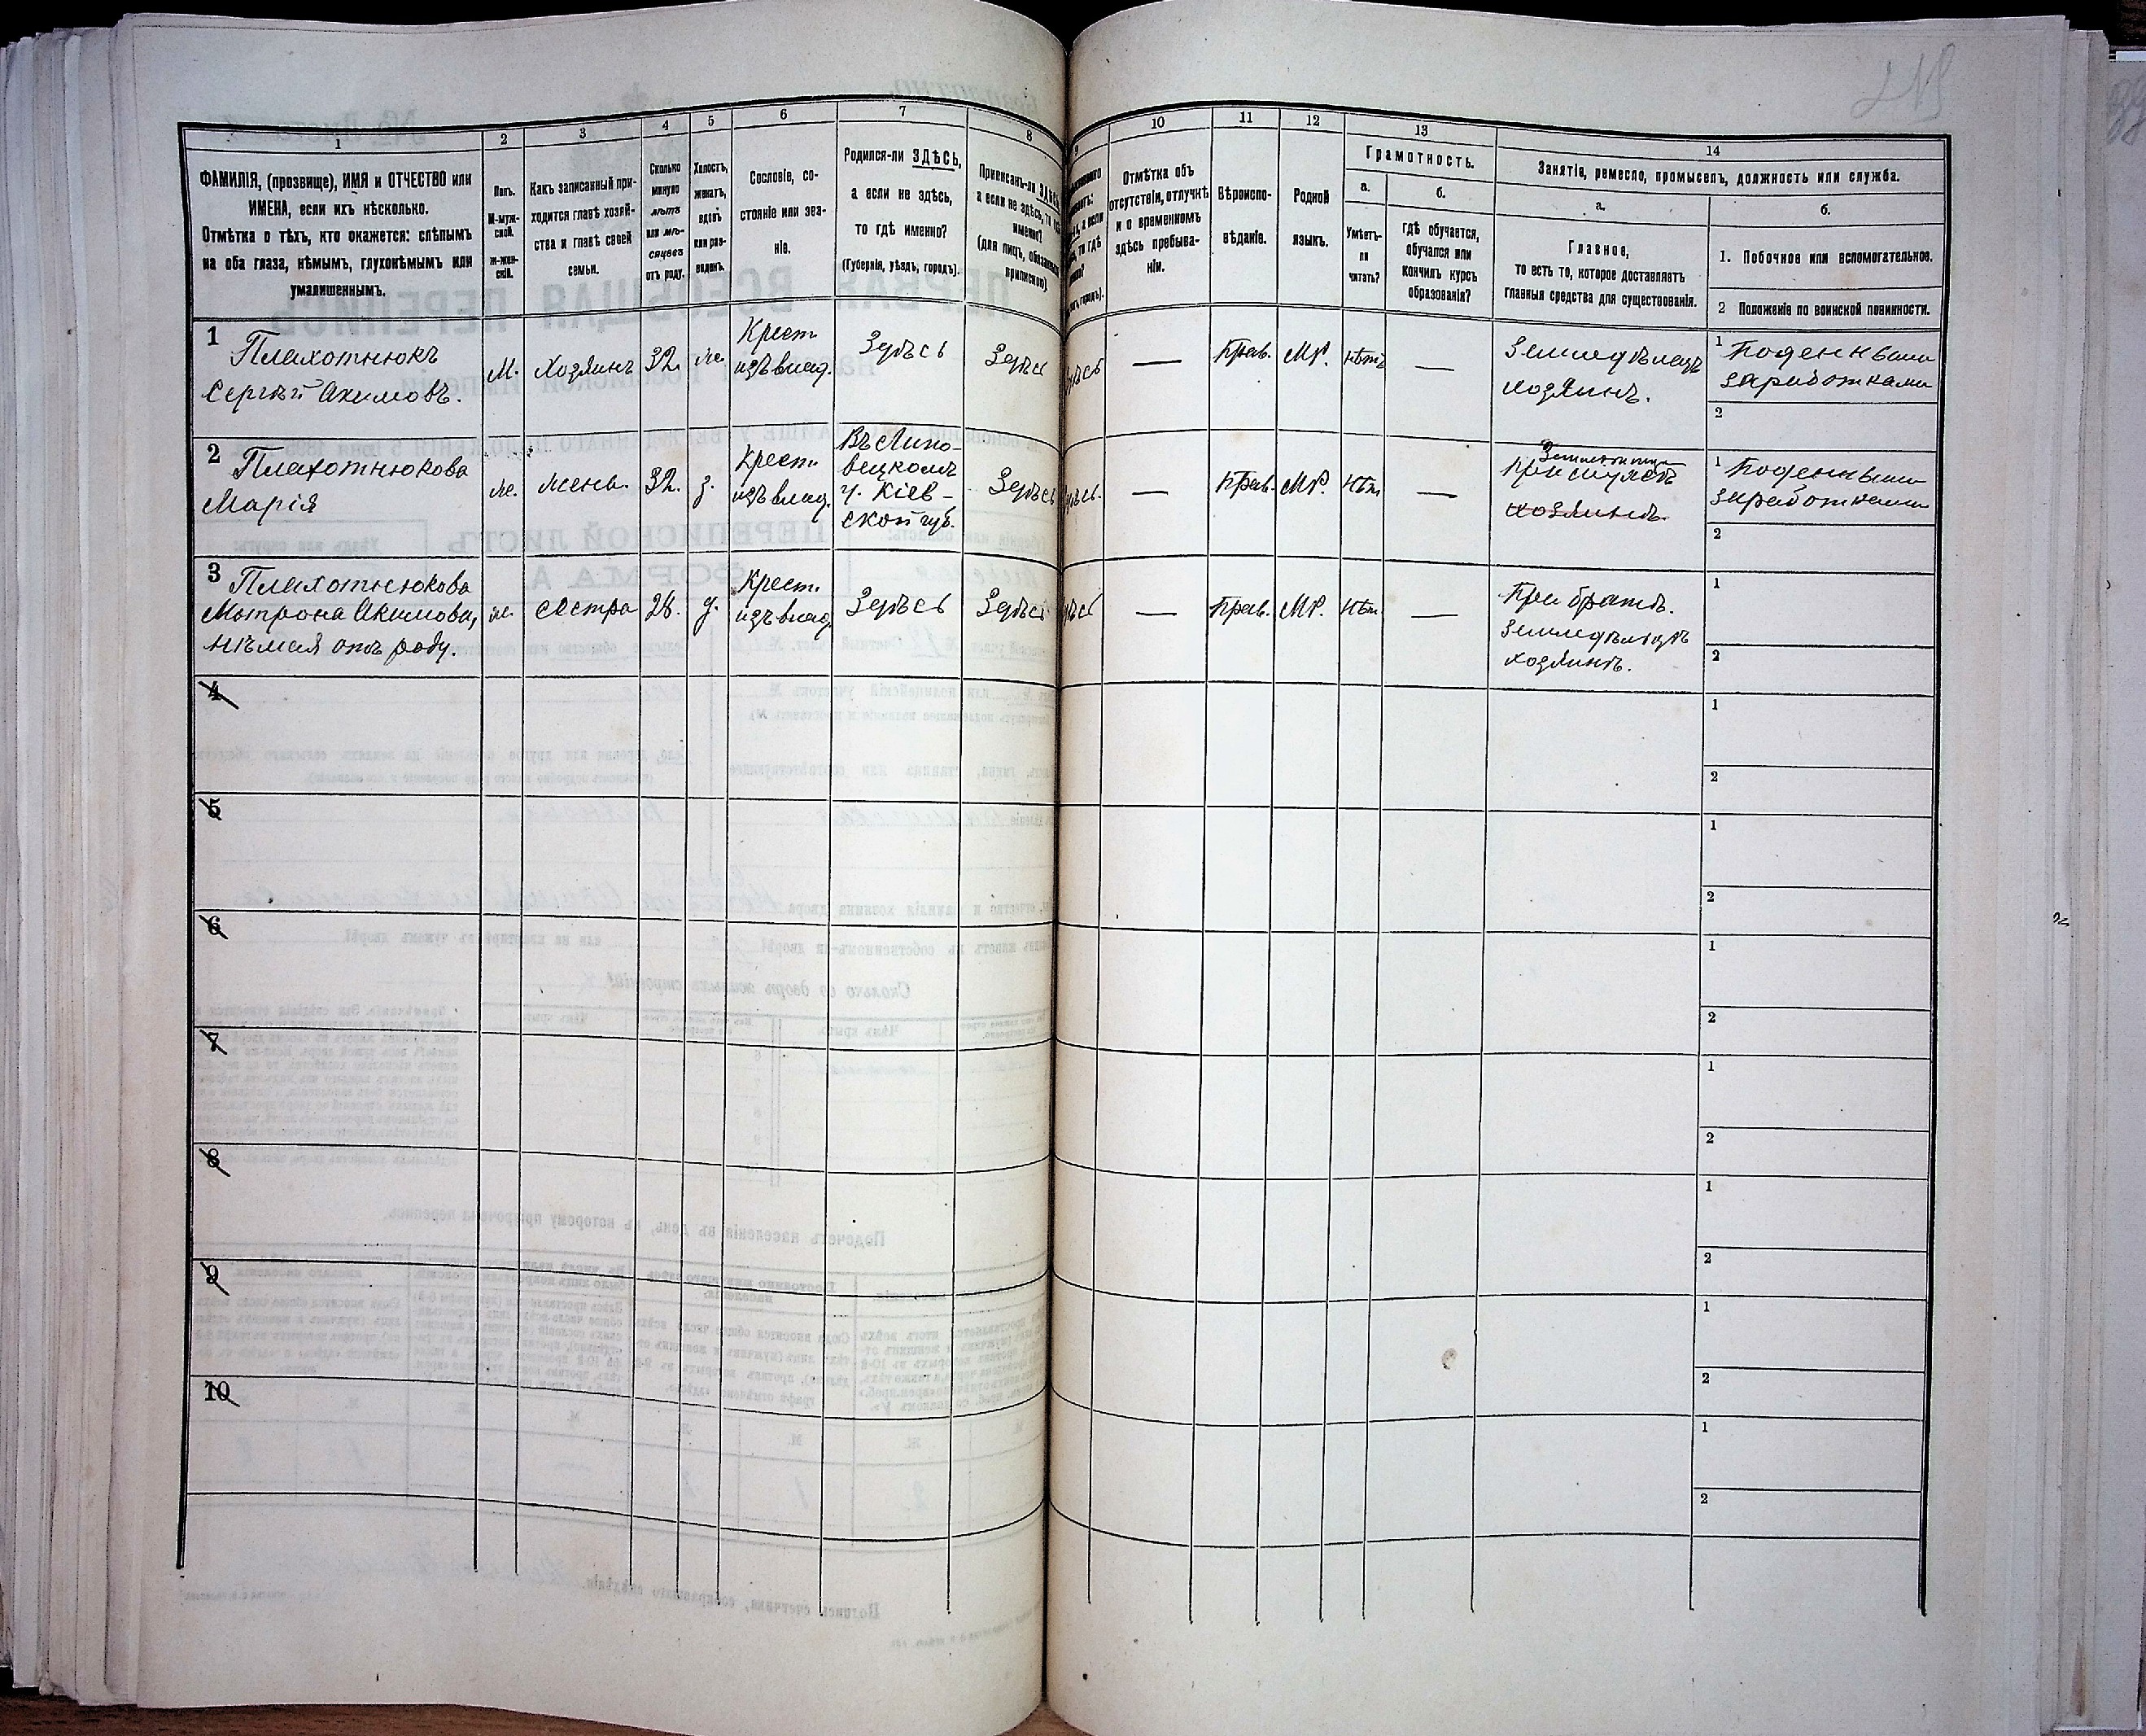 1
ФАМИЛІЯ, (прозвище), ИМЯ и ОТЧЕСТВО или
ИМЕНА, если ихъ нѣсколько.
Отмѣтка о тѣхъ, кто окажется: слѣпымъ
на оба глаза, нѣмымъ, глухонѣмымъ или
умалишеннымъ.
2
Полъ.
М-муж-
ской.
Ж-жен-
скій.
3
Какъ записанный при-
ходится главѣ хозяй-
ства и главѣ своей
семьи.
4
Сколько
минуло
лѣтъ
или мѣ-
сяцевъ
отъ роду.
5
Холостъ,
женатъ,
вдовъ
или раз-
веденъ.
6
Сословіе, со-
стояніе или зва-
ніе.
7
Родился-ли ЗДѢСЬ,
а если не здѣсь,
то гдѣ именно?
(Губернія, уѣздъ, городъ).
8
Приписанъ-ли ЗДѢСЬ,
а если не здѣсь, то гдѣ
именно?
(для лицъ, обязанныхъ
припискою).
10
Отмѣтка объ
отсутствіи, отлучкѣ
и о временномъ
здѣсь пребыва-
ніи.
11
Вѣроиспо-
вѣданіе.
12
Родной
языкъ.
13
Грамотность.
а.
Умѣетъ-
ли
читать?
б.
гдѣ обучается,
обучался или
кончилъ курсъ
образованія?
14
Занятіе, ремесло, промыселъ, должность или служба.
а.
Главное,
то есть то, которое доставляетъ
главныя средства для существованія.
б.
1. Побочное или вспомогательное.
2 Положеніе по воинской повинности.
1 Плахотнюкъ
Сергѣй Акимовъ.
М.
Хозяинъ
32.
ж.
Крест.
изъ влад.
Здѣсь
Здѣсь
—
Прав.
МР.
Нѣтъ
—
Земледѣлецъ
хозяинъ.
1 Поденными
заработками
2
2 Плахотнюкова
Марія
ж.
жена.
32.
з.
Крест.
изъ влад.
Въ Липо-
вецкомъ
у. Кіев-
ской губ.
Здѣсь
—
Прав.
МР.
Нѣт
—
хозяинъ.
1 Поденными
заработками
2
3 Плахотнюкова
Мотрона Акимова,
нѣмая отъ роду.
ж.
сестра
28.
д.
Крест.
изъ влад.
Здѣсь
Здѣсь
—
Прав.
МР.
Нѣт
—
При братѣ.
Земледѣлецъ
хозяинъ.
1
2
4
1
2
5
1
2
6
1
2
7
1
2
8
1
2
9
1
2
10
1
2